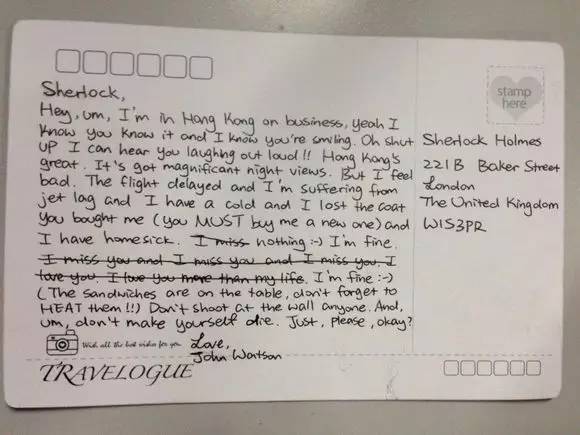 Sherlock,
Hey, um, I'm in Hong Kong on business, yeah I
know you know it and I know you're smiling. Oh shut
up I can hear you laughing out loud!! Hong Kong's
great. It's got magnificant night views. But I feel
bad. The flight delayed and I'm suffering from
jet lag and I have a cold and I lost the coat
you bought me (you MUST buy me a new one) and
I have homesick. I miss nothing :-) I'm fine.
I miss you and I miss you and I miss you. I
love you. I love you more than my life. I'm fine :-)
(The sandwiches are on the table, don't forget to
HEAT them!!) Don't shoot at the wall anyone. And,
um, don't make yourself die. Just, please, okay?
With all the best wishes for you
Love,
John Wartson
TRAVELOGUE
stamp
here
Sherlock Holmes
221B Baker Street
London
The United Kingdom
W1S3PR